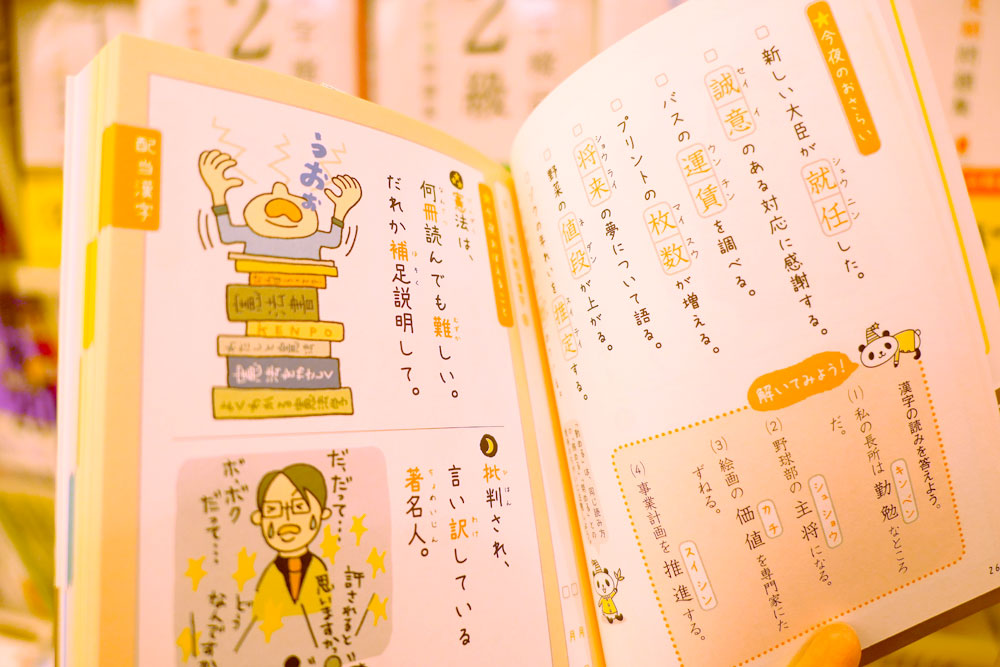 ★今夜のおさらい
シュウニン
新しい大臣が就任した。
セイイ
誠意のある対応に感謝する。
ウンチン
バスの運賃を調べる。
マイスウ
プリントの枚数が増える。
ショウライ
将来の夢について語る。
ネダン
野菜の値段が上がる。
解いてみよう!
漢字の読みを答えよう。
(1) 私の長所は勤勉なところ
だ。
キンベン
(2) 野球部の主将になる。
シュショウ
(3) 絵画の価値を専門家にた
ずねる。
カチ
(4) 事業計画を推進する。
スイシン
26
配当漢字
憲法は、
何冊読んでも難しい。
だれか補足説明して。
うおぉ
憲法書
KENPO
わたしと憲法
憲法をやさしく
よくわかる憲法学
批判され、
言い訳している
著名人。
だって…
ボ、ボク
だって…
許されると
思いますか
2
2級